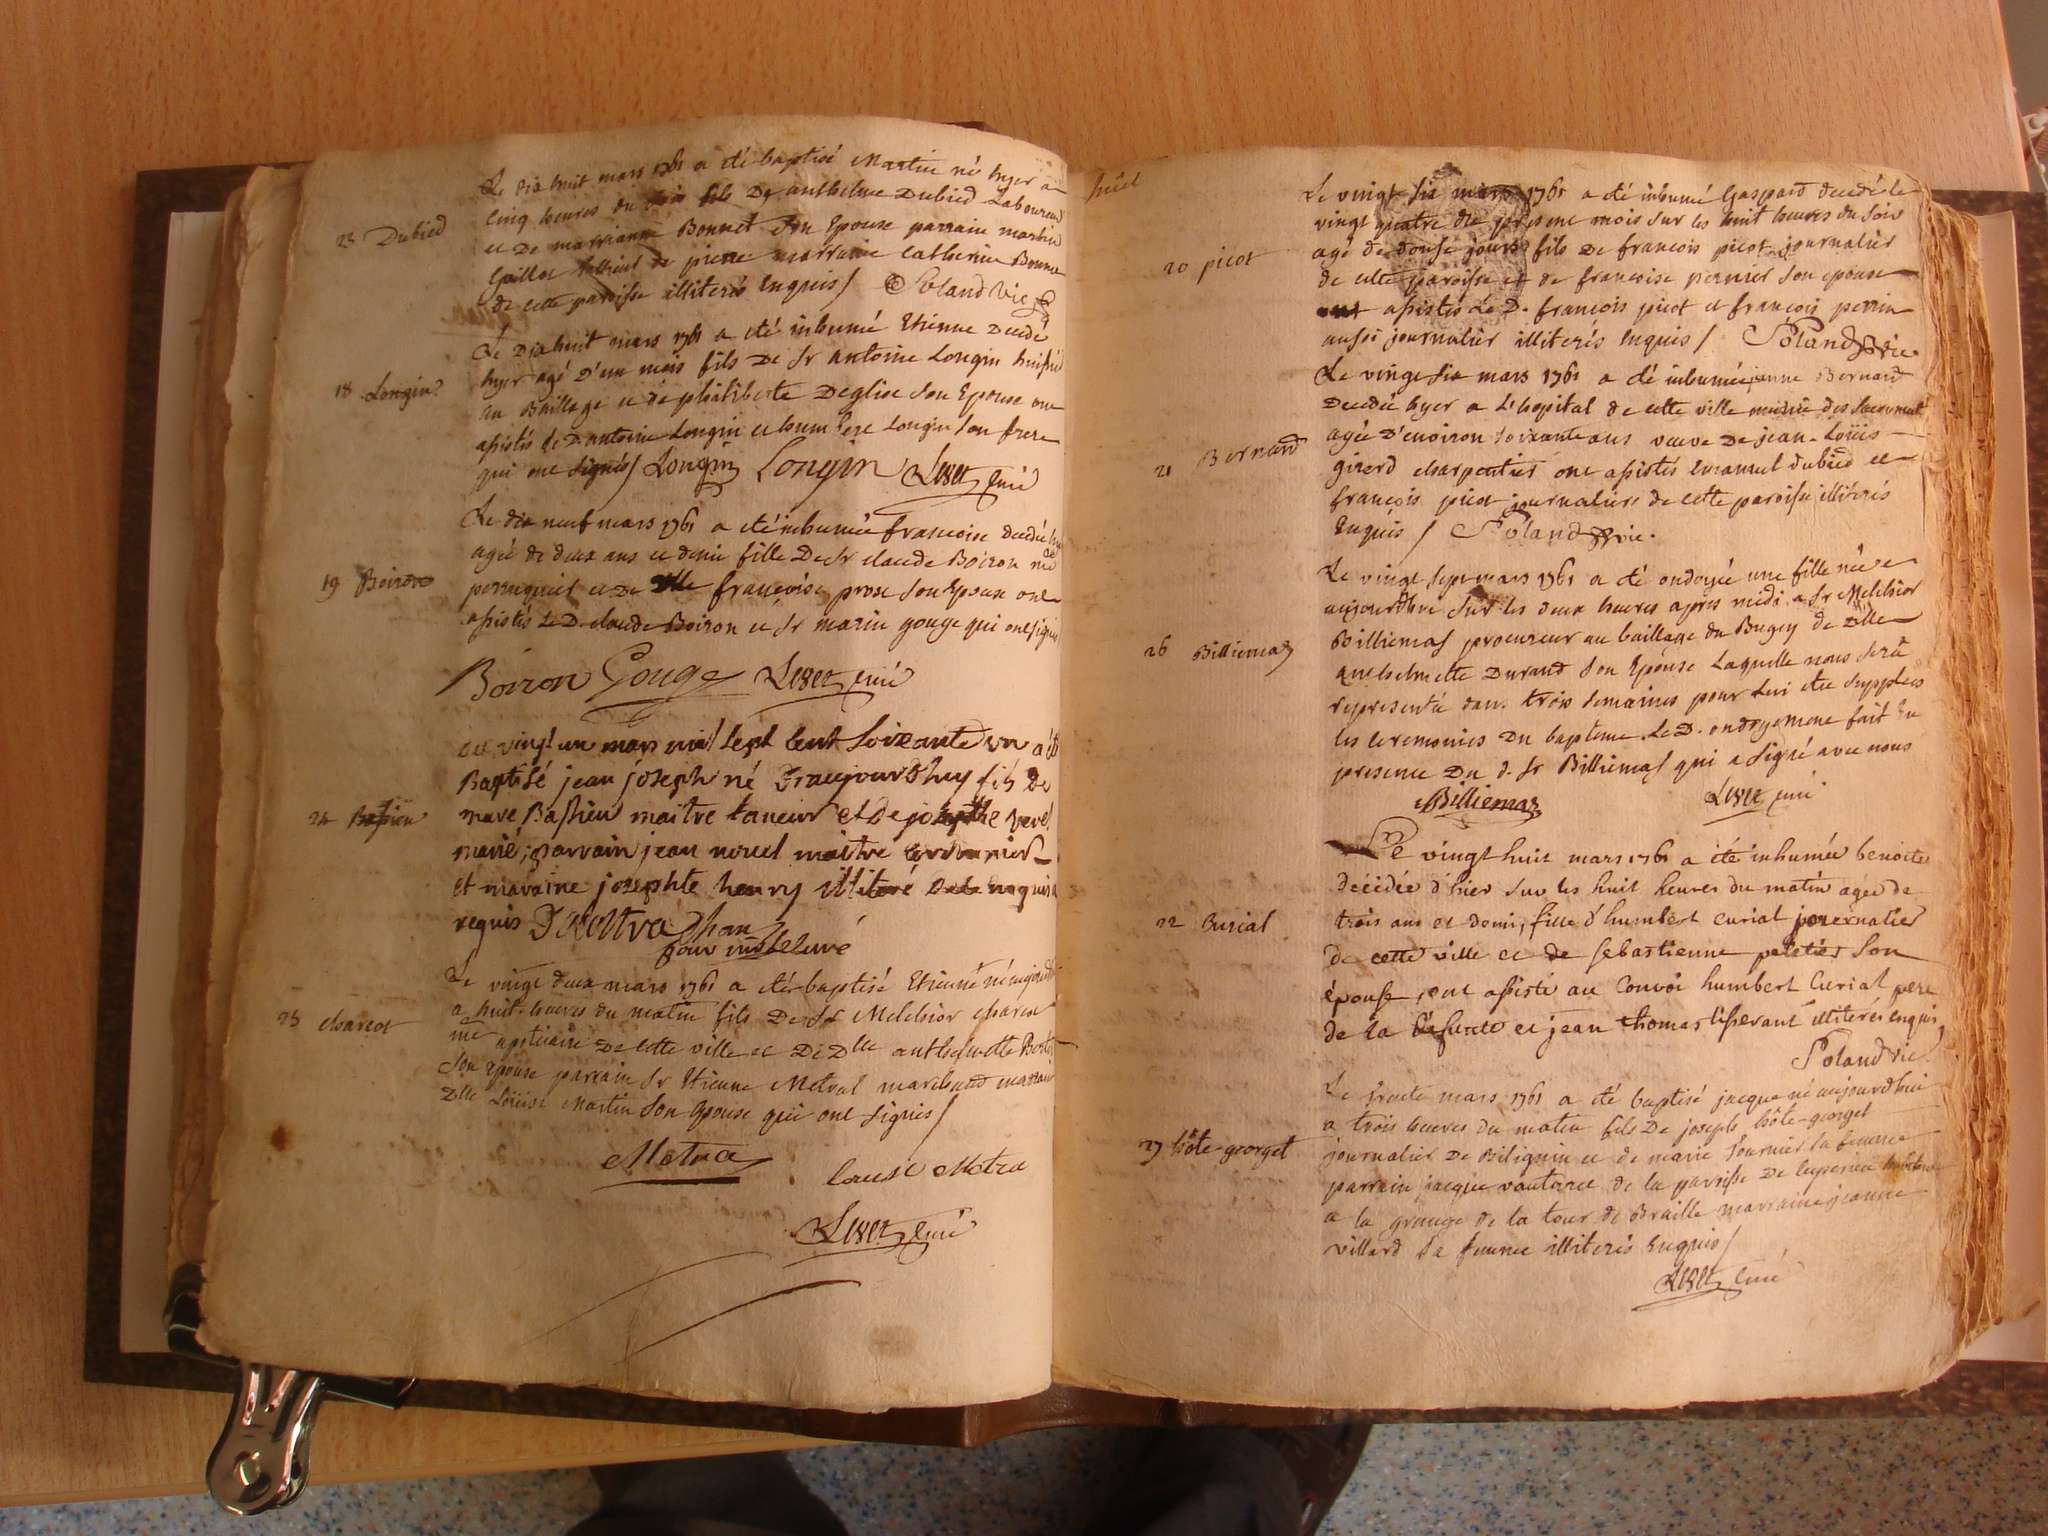 Le dix huit mars 1761 a été baptisé Martin né hyer a
cinq heures du soir fils De anthelme Dubied Laboureur
23 Dubied
et De marrianne Bonnet son Epouse parrain martin
Gaillot de pierre marraine catherine Bonnet
de cette paroisse illiterés Enquis / Poland Vic
Le Dixhuit mars 1761 a été inhumé Etienne Decedé
hyer agé D'un mois fils De Sr antoine Longin huissier
18 Longin
au Baillage et de philiberte Deglise son Epouse ont
assistés le D. antoine Longin et humbert Longin son frere
qui ont signés / Longin Longin Curé
Le dix neuf mars 1761 a été inhumée francoise decedée
agée de deux ans et demie fille De Sr claude Boiron me
19 Boiron
perruquier et De Dlle francoise prost son Epouse ont
assistés Le D. claude Boiron et Sr marin gouge qui ont signés
Boiron Gouge Curé
Ce vingt un mars mil sept cent soixante un a été
Baptisé jean joseph né D'aujourd'huy fils de
24 Bassieu
marc Bassieu maitre taneur et de josephte
marié, parrain jean maitre cordonnier
et maraine josephte henry illiteré enquis
requis
pour mr le curé
Le vingt deux mars 1761 a été baptisé Etienne né aujourd'hui
a huit heures du matin fils De Sr Melchior charcot
25 charcot
me apoticaire De cette ville et De Dlle anthelmette
son Epouse parrain Sr Etienne Metral marchand marraine
Dlle Loüise Martin son Epouse qui ont signés /
Metra
Louise Metra
Curé
Le vingt six mars 1761 a été inhumé Gaspard decedé le
vingt quatre du present mois sur les huit heures du soir
agé de douse jours fils De francois picot journalier
20 picot
de cette paroisse et de francoise pernier son epouse
ont assistés Le D. francois picot et francois perrin
aussi journalier illiterés Enquis / Poland Vic
Le vingt six mars 1761 a été inhumée jeanne Bernard
Decedée hyer a L'hopital de cette ville munie des sacrements
agée D'environ soixante ans veuve De jean-Loüis
21 Bernard
girerd charpentier ont assistés Emanuel dubied et
francois picot journaliers de cette paroisse illiterés
Enquis / Poland Vic.
Le vingt sept mars 1761 a été ondoyée une fille née
aujourdhui sur les deux heures apres midi a Sr Melchior
26 Billiemaz
Billiemaz procureur au baillage du Bugey de Dlle
anthelmette Durand son Epouse Laquelle nous sera
representée dans trois semaines pour lui etre supplées
les ceremonies Du bapteme. Le D. ondoyement fait En
presence Du d. Sr Billiemaz qui a signé avec nous
Billiemaz Curé
Le vingt huit mars 1761 a été inhumée benoite
décédée d'hier sur les huit heures du matin agée de
22 Curial
trois ans et demi, fille d'humbert curial journalier
de cette ville et de sebastienne peletier son
épouse, ont assisté au Convoi humbert Curial pere
de la défunte et jean thomas illiterés enquis
Poland Vic.
Le trente mars 1761 a été baptisé jacque né aujourdhui
a trois heures du matin fils De joseph hôte-georget
27 hôte-georget
journalier De Bilignin et de marie fournier sa femme
parrain jacque de la paroisse De
a la grange de la tour de Braille marraine jeanne
villard sa femme illiterés Enquis /
Curé